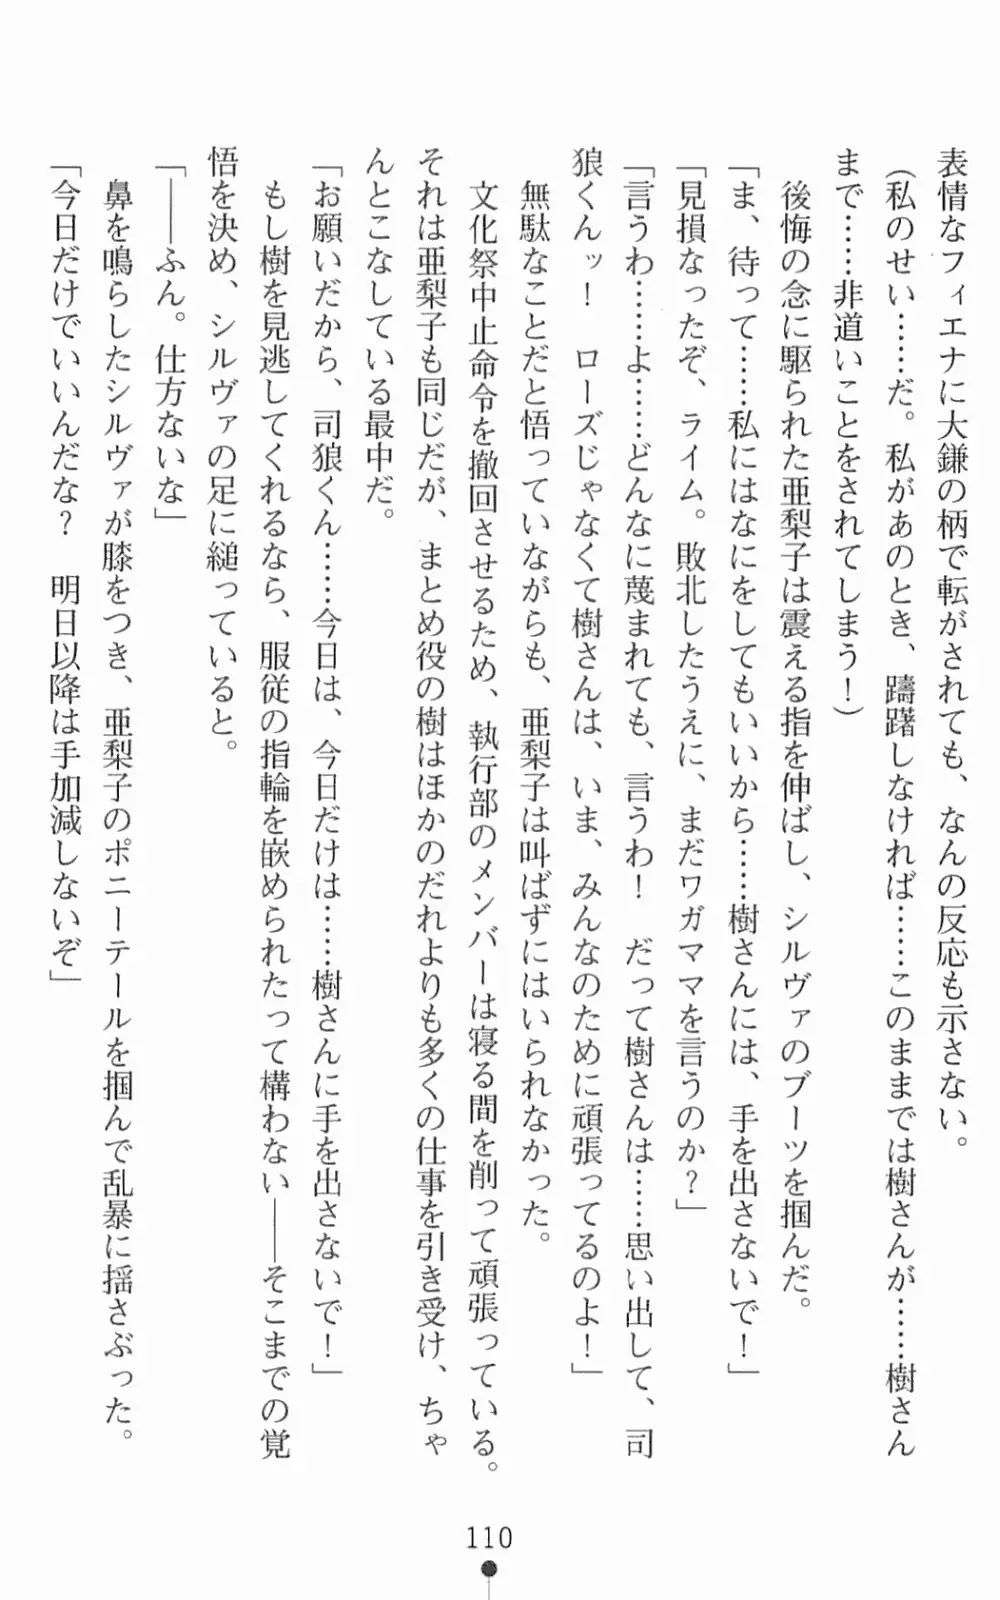 表情なフィエナに大鎌の柄で転がされても、なんの反応も示さない。
（私のせい……だ。私があのとき、躊躇しなければ……このままでは樹さんが……樹さん
まで……非道いことをされてしまう！）
後悔の念に駆られた亜梨子は震える指を伸ばし、シルヴァのブーツを掴んだ。
「ま、待って……私にはなにをしてもいいから……樹さんには、手を出さないで！」
「見損なったぞ、ライム。敗北したうえに、まだワガママを言うのか？」
「言うわ……よ……どんなに蔑まれても、言うわ！　だって樹さんは……思い出して、司
狼くんッ！　ローズじゃなくて樹さんは、いま、みんなのために頑張ってるのよ！」
無駄なことだと悟っていながらも、亜梨子は叫ばずにはいられなかった。
文化祭中止命令を撤回させるため、執行部のメンバーは寝る間を削って頑張っている。
それは亜梨子も同じだが、まとめ役の樹はほかのだれよりも多くの仕事を引き受け、ちゃ
んとこなしている最中だ。
「お願いだから、司狼くん……今日は、今日だけは……樹さんに手を出さないで！」
もし樹を見逃してくれるなら、服従の指輪を嵌められたって構わない――そこまでの覚
悟を決め、シルヴァの足に縋っていると。
「――ふん。仕方ないな」
鼻を鳴らしたシルヴァが膝をつき、亜梨子のポニーテールを掴んで乱暴に揺さぶった。
「今日だけでいいんだな？　明日以降は手加減しないぞ」
110